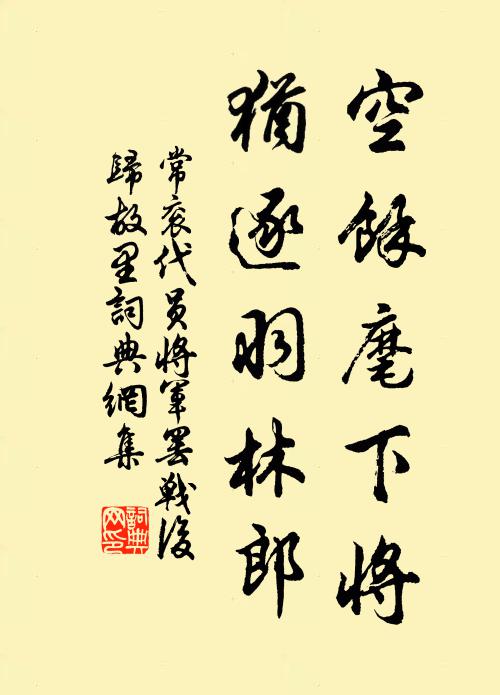 空餘麾下將
猶逐羽林郎
常衮代员將軍罢戰後
歸故里詞典網集
詞典
网印